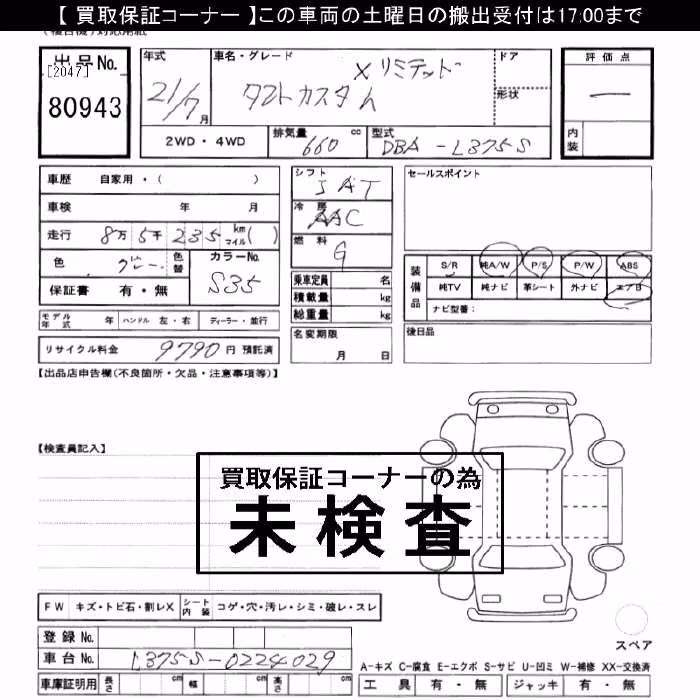 【 買取保証コーナー 】この車両の土曜日の搬出受付は17:00まで
出品No.
[2047]
80943
年式
21/7月
車名・グレード
タントカスタム
Xリミテッド
ドア
形状
評価点
内装
2WD・4WD
排気量 660 cc
型式 DBA-L375S
車歴 自家用・( )
車検 年 月
走行 8万5千235 km マイル( )
色 グレー 色替
カラーNo. S35
保証書 有・無
シフト
冷房 AAC
燃料 G
乗車定員 名
積載量 kg
総重量 kg
セールスポイント
装備品
S/R 純A/W P/S P/W ABS
純TV 純ナビ 革シート 外ナビ エアB
ナビ型番：
モデル年式 年 ハンドル 左・右 ディーラー・並行
名変期限
月 日
後日品
リサイクル料金 9790 円 預託済
【出品店申告欄(不良箇所・欠品・注意事項等)】
【検査員記入】
買取保証コーナーの為
未検査
FW キズ・トビ石・割レX シート内装 コゲ・穴・汚レ・シミ・破レ・スレ
登録No.
車台No. L375S-0224029
スペア
A-キズ C-腐食 E-エクボ S-サビ U-凹ミ W-補修 XX-交換済
車庫証明用 長さ cm 幅 cm 高さ cm
工具 有・無 ジャッキ 有・無